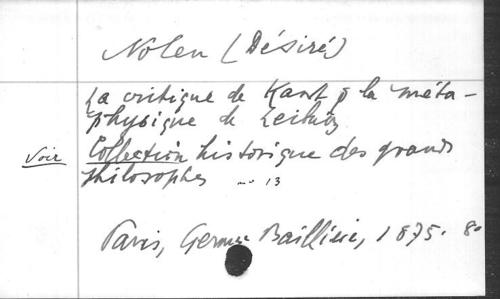 Nolen (Désiré)
La critique de Kant & la méta-
physique de Leibniz
voir Collection historique des grands
philosophes 13
Paris, Germer Baillière, 1875. 8o